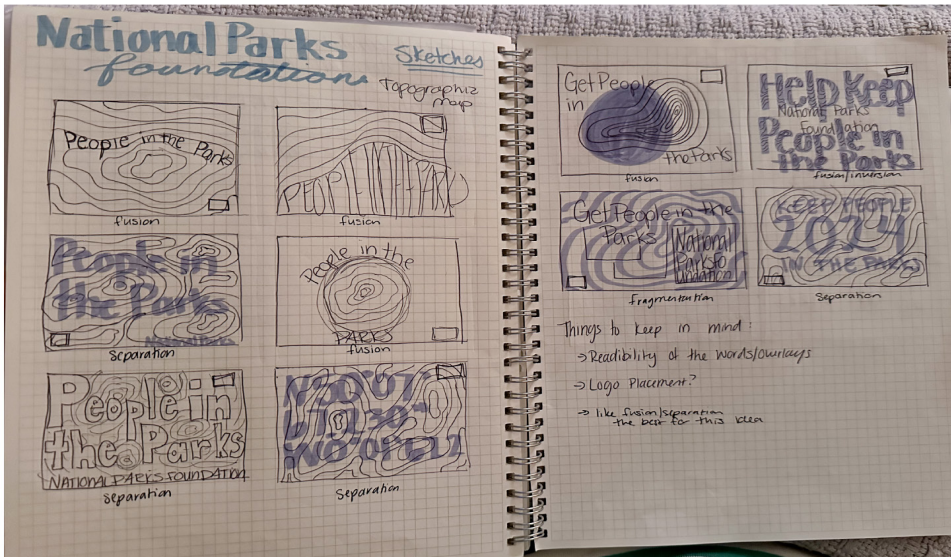 National Parks
foundation
Sketches
Topographic
map
People in the Parks
fusion
PEOPLE IN THE PARKS
fusion
People in
the Parks
Separation
People in the
PARKS
fusion
People in
the Parks
NATIONAL PARKS FOUNDATION
Separation
Separation
Get People
in
the Parks
fusion
Help Keep
National Parks
Foundation
People in
the Parks
fusion/inversion
Get People in the
Parks
National
Parks fo
undation
fragmentation
KEEP PEOPLE
2024
IN THE PARKS
Separation
Things to keep in mind:
→ Readibility of the words/overlays
→ Logo Placement?
→ like fusion/separation
the best for this idea